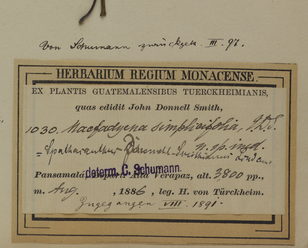 von Schumann zurückgek. III. 97.
HERBARIUM REGIUM MONACENSE
EX PLANTIS GUATEMALENSIBUS TUERCKHEIMIANIS,
quas edidit John Donnell Smith,
1030. Macfadyena simplicifolia, J.D.S.
n. sp. ined.
= Spathacanthus Donnell-Smithianus
determ. C. Schumann.
Pansamalá, Alta Verapaz, alt. 3800 pp.,
m. Aug., 1886, leg. H. von Türckheim.
Eingegangen VIII. 1891.